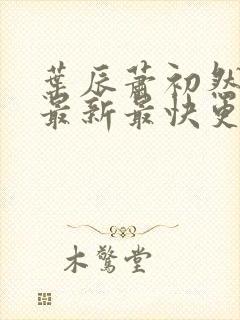 葉辰蕭初然
最新最快更
木驚堂